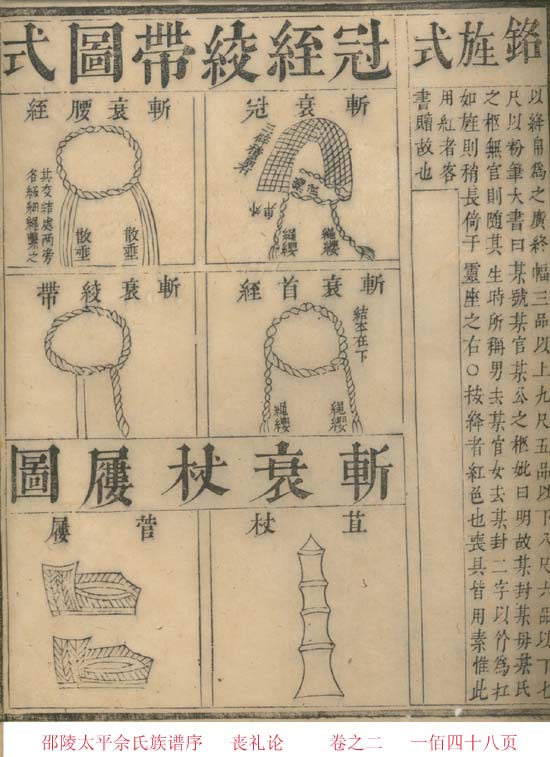 銘旌式
以絳帛為之廣終幅三品以上九尺五品以下八尺六品以下七
尺以粉筆大書曰某號某官某公之柩妣曰明故某封某母某氏
之柩無官則隨其生時所稱男去某官女去某封二字以竹為杠
如旌則稍長倚于靈座之右○按絳者紅色也喪具皆用素惟此
用紅者客
書贈故也
冠絰絞帶圖式
斬衰冠
繩纓
繩纓
斬衰腰絰
散垂
散垂
其交結處兩旁
各綴細繩繫之
斬衰首絰
結本在下
繩纓
繩纓
斬衰絞帶
斬衰杖屨圖
苴杖
菅屨
邵陵太平佘氏族谱序 丧礼论 卷之二 一佰四十八页